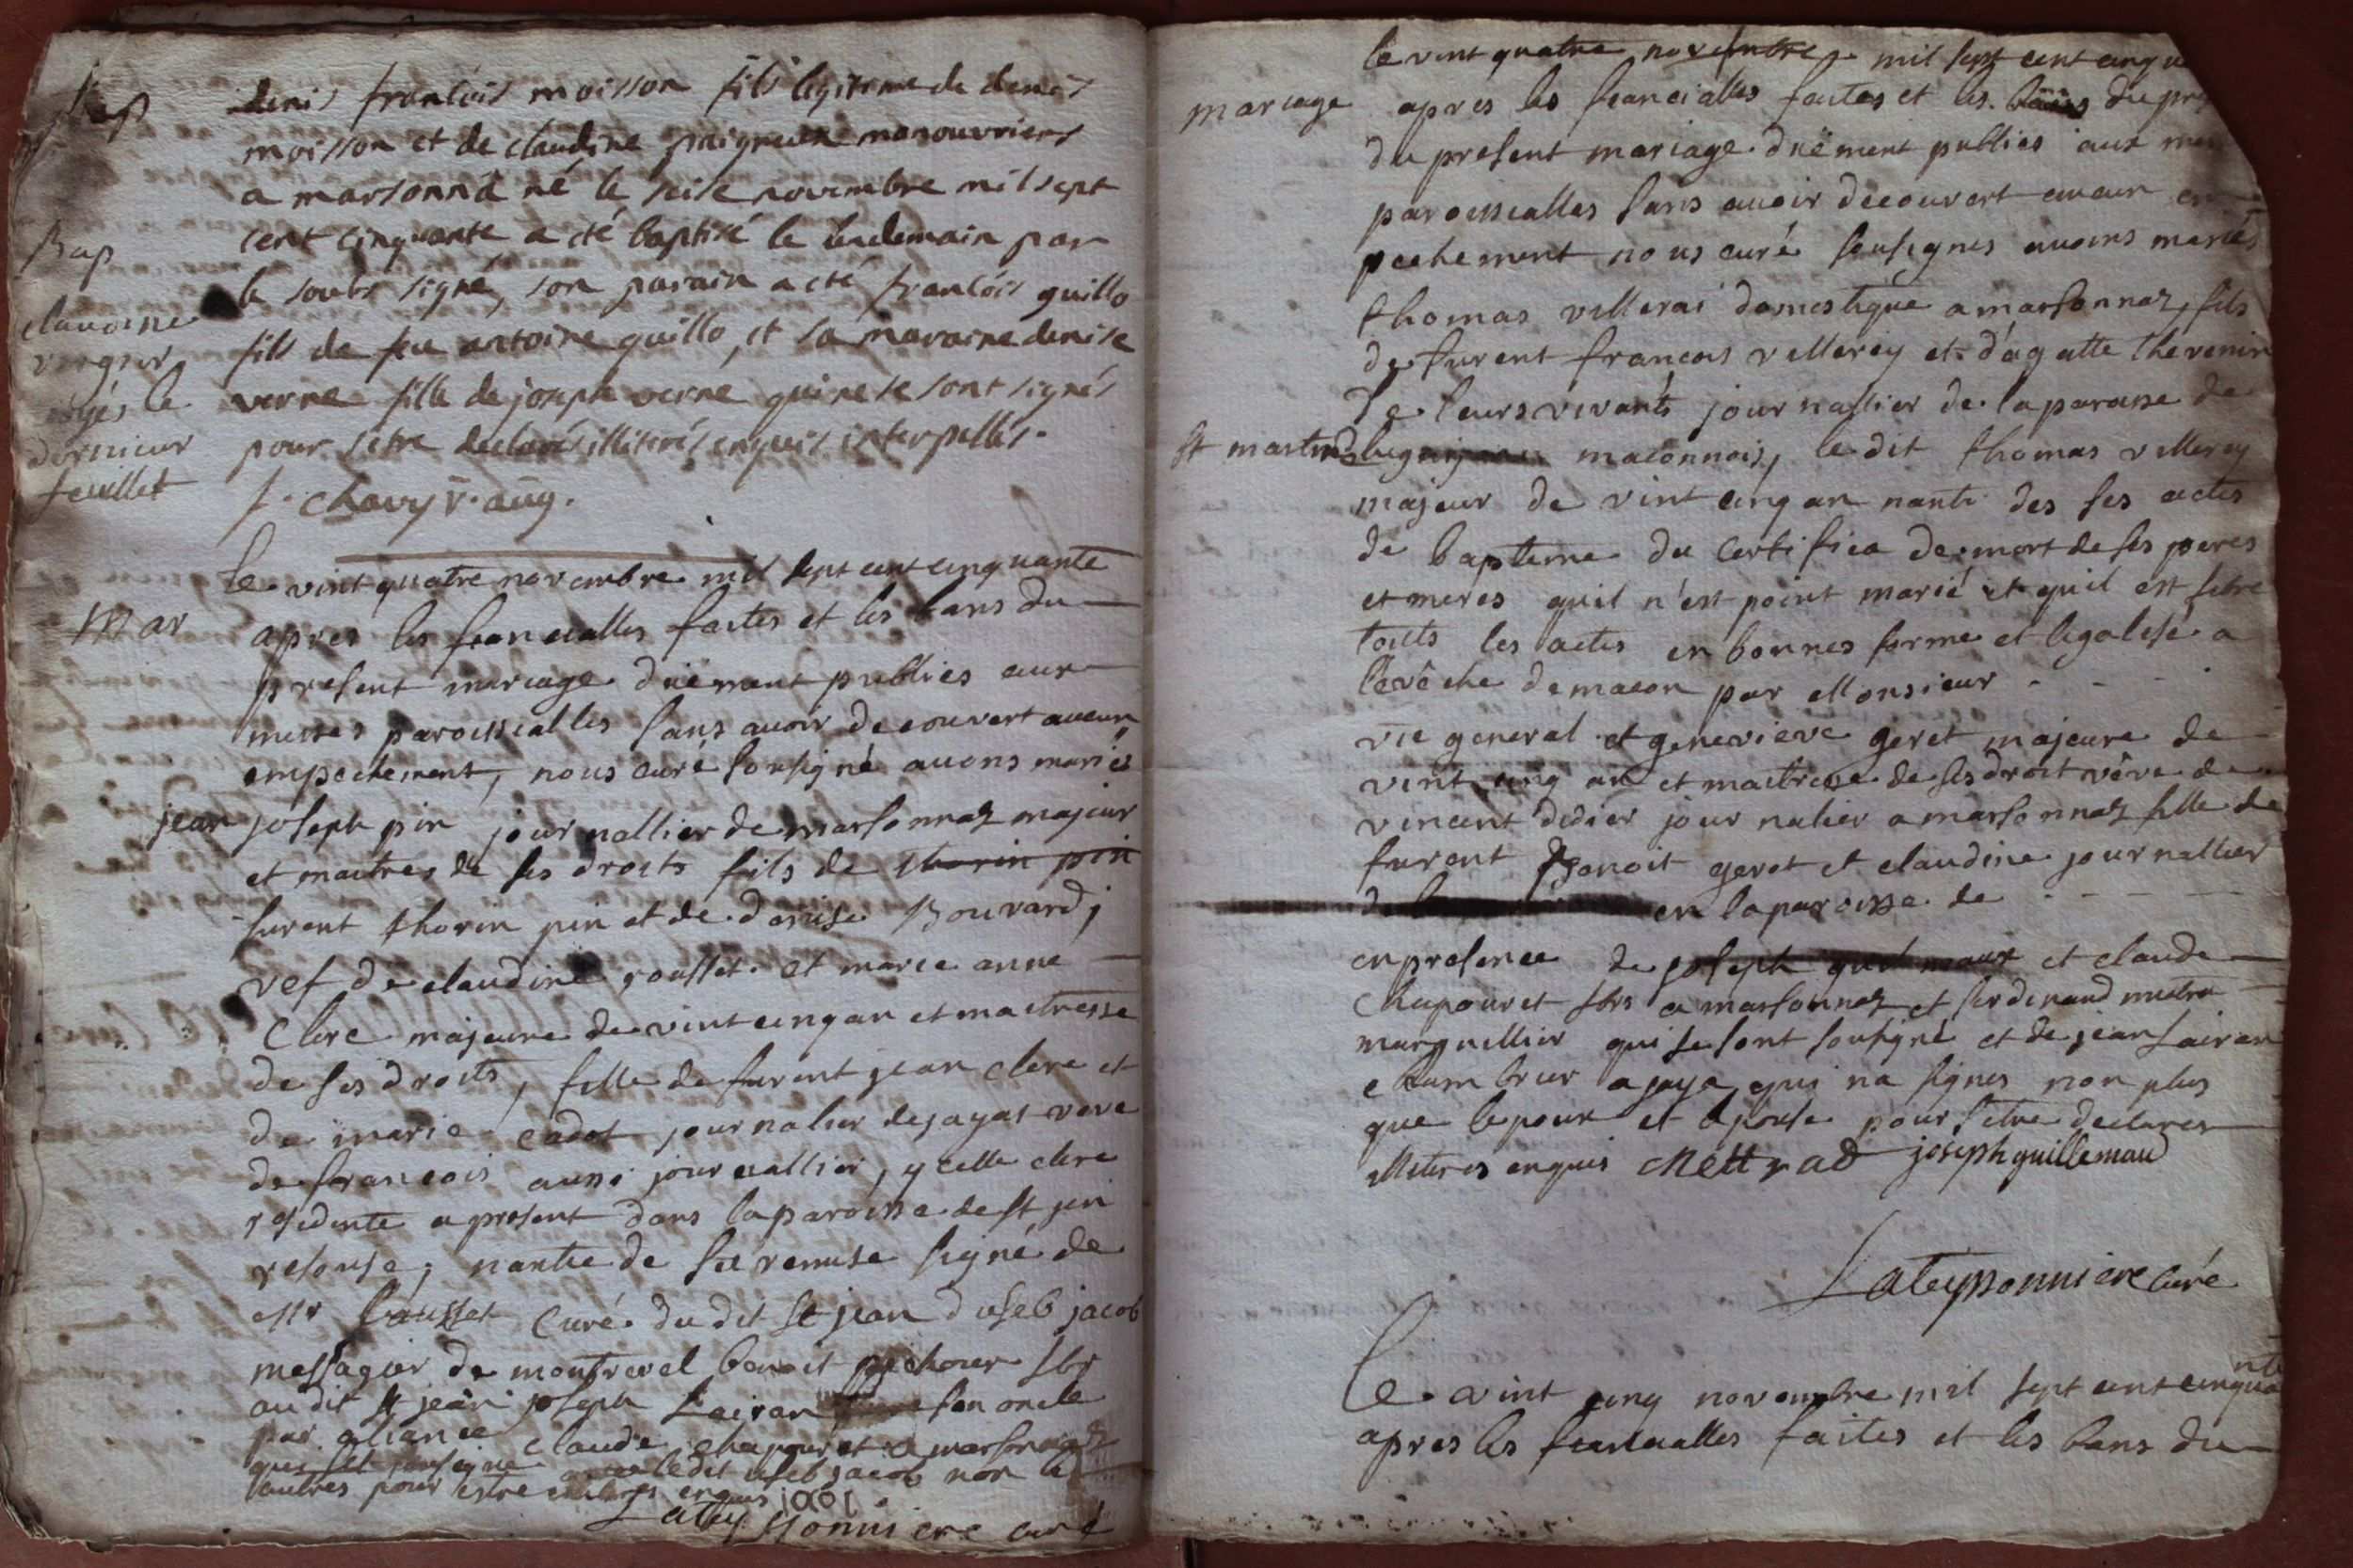 Bap
denis francois moisson fils legitime de denis
moisson et de claudine manouvriers
a marsonna né le seise novembre mil sept
cent cinquante a été baptisé le lendemain par
le soubs signé, son parain a cté francois guillo
fils de feu antoine guillo, et sa maraine denise
verne fille de joseph verne qui ne se sont signés
pour s'etre declarés illiterés enquis interpellés.
f. chavy v. aug.
Bap
dernieur
feuillet
Mar
le vint quatre novembre mil sept cent cinquante
apres les fiancialles faites et les bans du
present mariage düement publies aux
messes paroissialles sans avoir decouvert aucun
empechement, nous curé sousigné avons mariés
jean joseph pin journallier de marsonnaz majeur
et maitres de ses droits fils de thorin pin
furent thorin pin et de denise Bouvard;
vef de claudine rousset. et marie anne
Clere majeure de vint cinq an et maitresse
de ses droits, fille de furent jean clere et
de marie cadot journalier de jayat veve
de francois aussi journallier, ycelle clere
residente a present dans la paroisse de st jen
resouse; nantie de sa remise signé de
Mr curé du dit St jean d useb jacob
messagier de montrevel benoit pechoux sbr
au dit st jean joseph Lairan son oncle
par aliance claude chapouret a marsonnaz
qui sousigné avec le dit useb jacob non les
autres pour estre enquis iacob
Lateyssonniere curé
mariage
le vint quatre novembre mil sept cent cinqu
apres les fiancialles faites et les bans du pr
du present mariage düement publies aux mes
paroissialles sans avoir decouvert aucun em
pechement nous curé sousignes avons mariés
thomas villerai domestique a marsonnaz, fils
de furent francois villerey et d'agatte thevenin
de leurs vivants journallier de la paroisse de
st martin maconnois, le dit thomas villerey
majeur de vint cinq an nanti des ses actes
de bapteme du certifica de mort de ses peres
et meres quil n'est point marié et quil est libre
touts les actes en bonnes forme et legalisé a
l'evêche de macon par Monsieur - - -
vic general et genevieve geret majeure de
vint cinq an et maitresse de ses droit veve de
vincent didier journalier a marsonnaz fille de
furent Benoit geret et claudine journallier
en la paroisse de - - -
en presence de joseph guilmaux et claude
chapouret sbrs a marsonnaz et ferdinand metra
marguillier qui se sont sousigné et de jean Lairan
chambrier a jaya qui na signes non plus
que lepoux et epouse pour s'etre declares
illiteres enquis Mettrad joseph guillemaud
Lateyssonniere Curé
Le vint cinq novembre mil sept cent cinquante
apres les fiancialles faites et les bans du